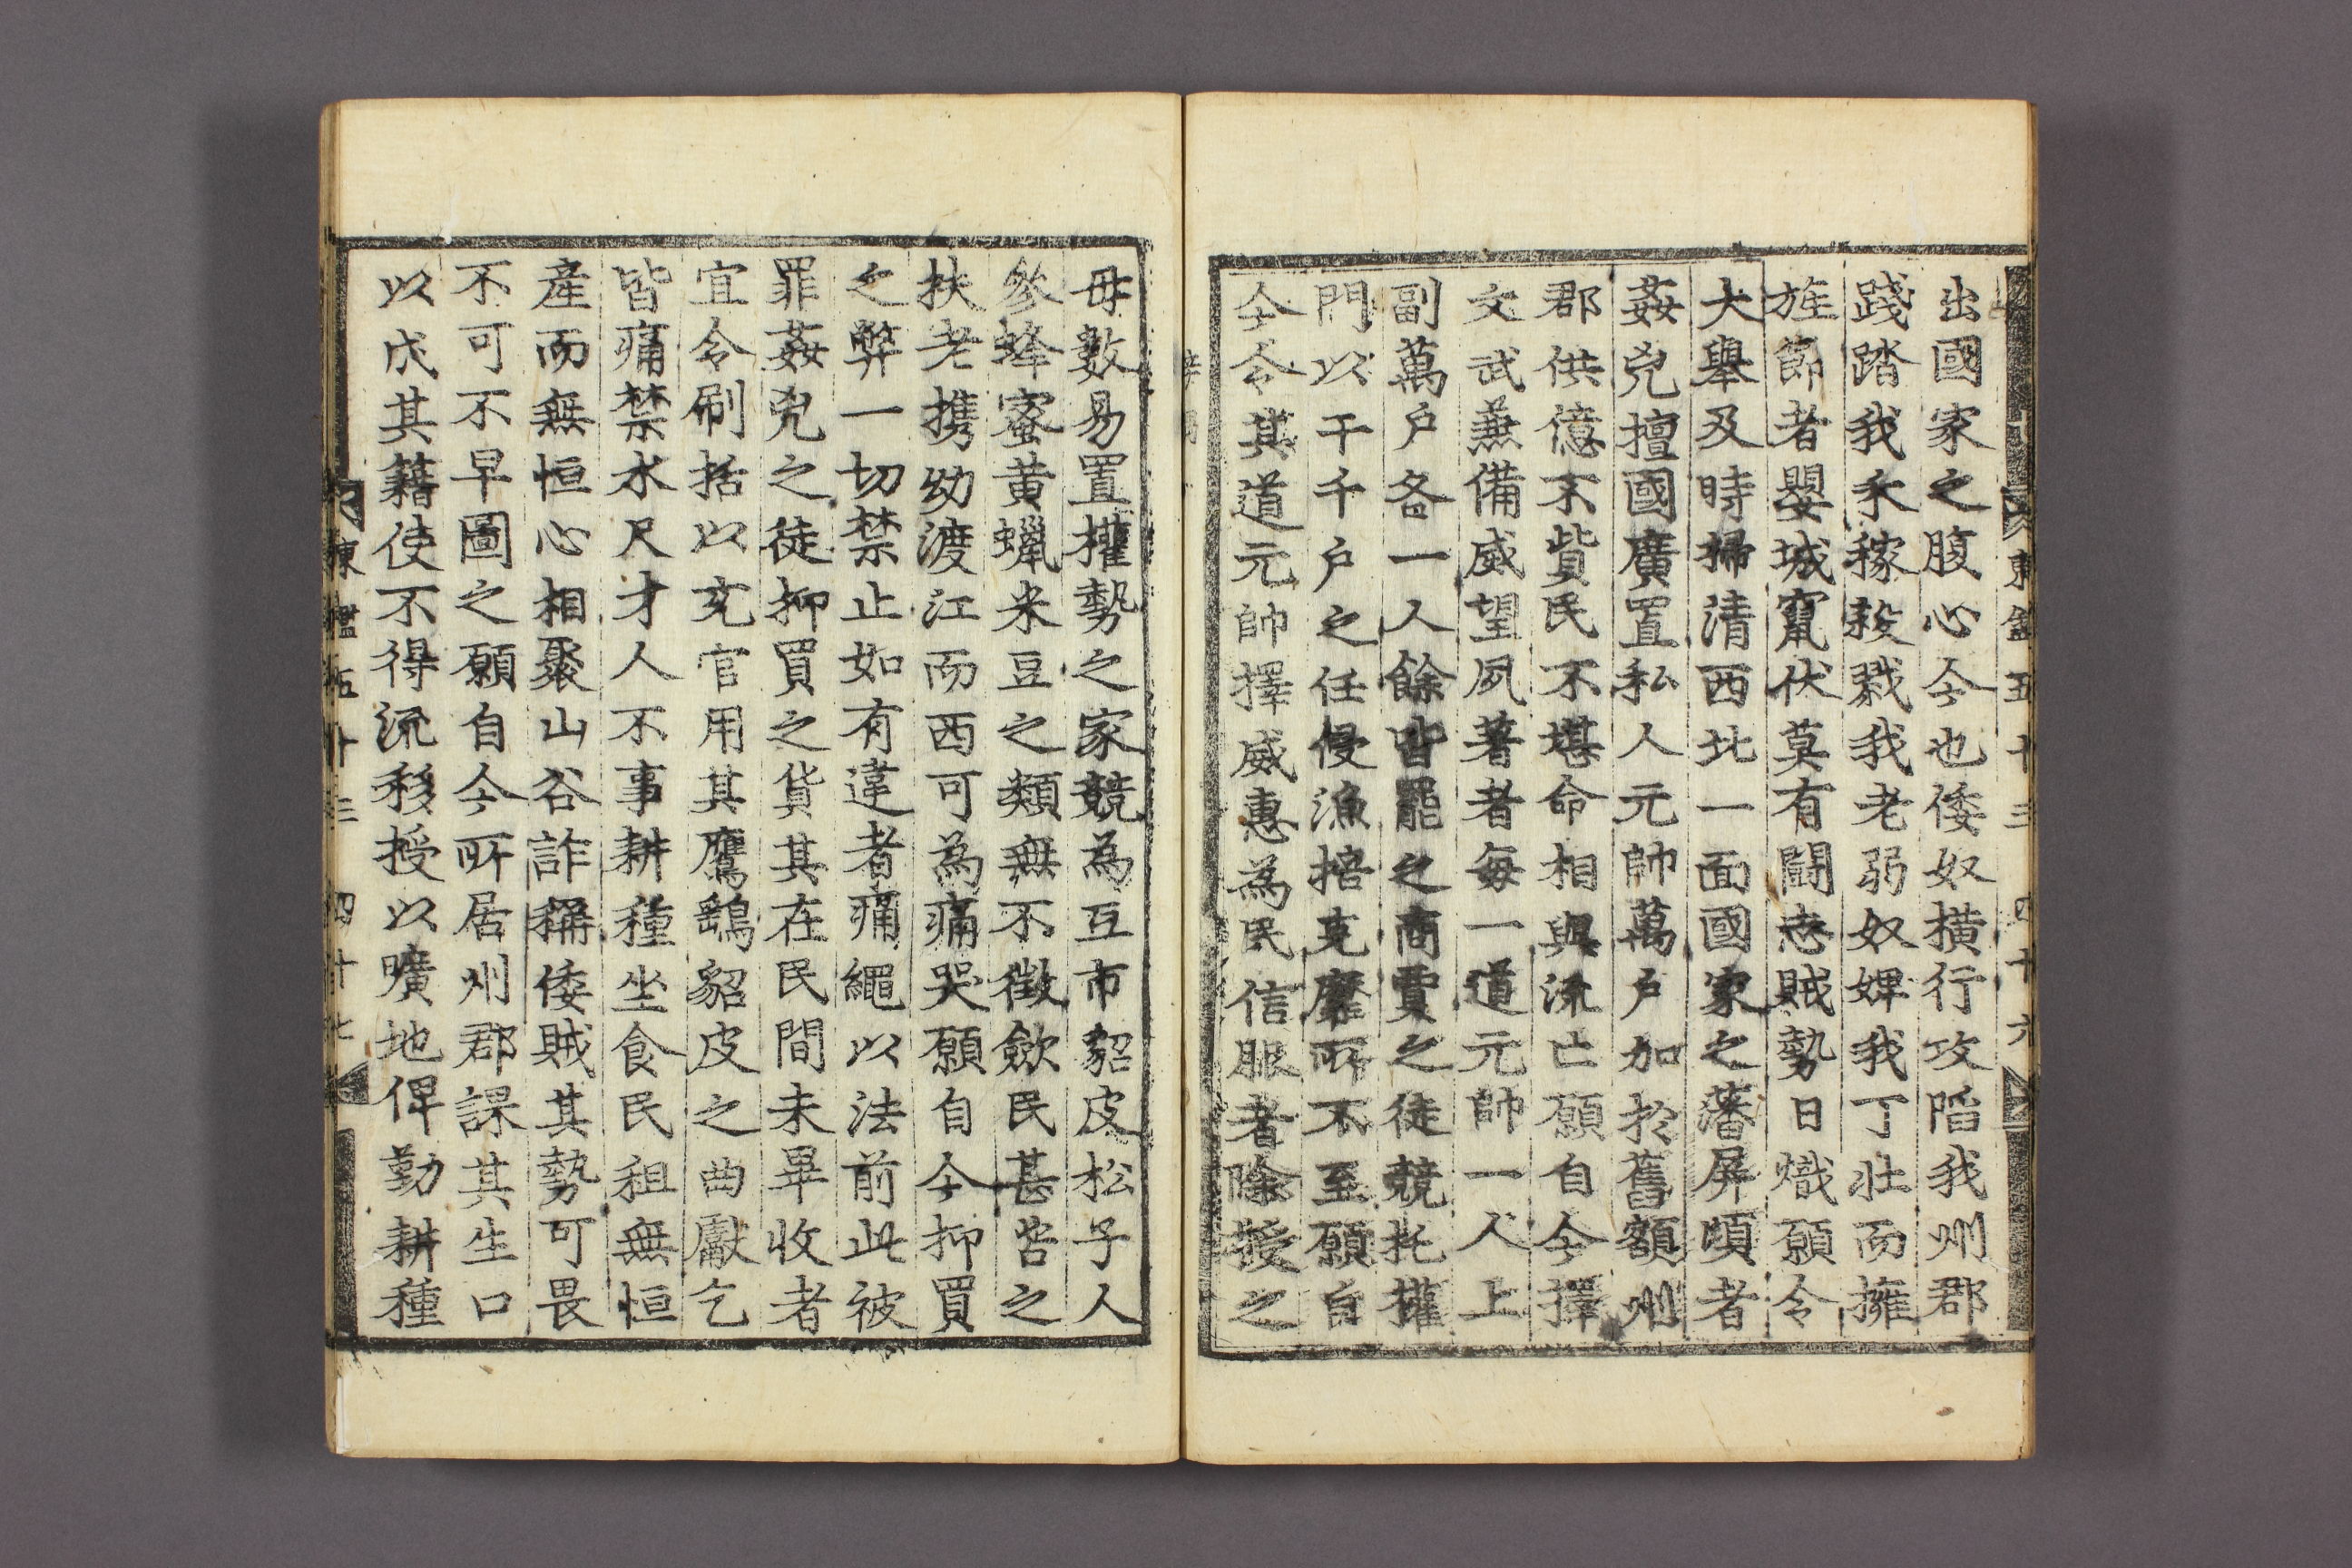 東鑑五十三 四十六
出國家之腹心今也倭奴橫行攻陷我州郡
踐踏我禾稼殺戮我老弱奴婢我丁壯而擁
旌節者嬰城竄伏莫有鬪志賊勢日熾願令
大舉及時掃清西北一面國家之藩屏頃者
姦兇擅國廣置私人元帥萬戶加於舊額州
郡供億不貲民不堪命相與流亡願自今擇
文武兼備威望夙著者每一道元帥一人上
副萬戶各一人餘皆罷之商賈之徒競托權
門以干千戶之任侵漁掊克靡所不至願自
今令其道元帥擇威惠爲民信服者除授之
毋數易置權勢之家競爲互市貂皮松子人
參蜂蜜黃蠟米豆之類無不徵歛民甚苦之
扶老携幼渡江而西可爲痛哭願自今抑買
之弊一切禁止如有違者痛繩以法前此被
罪姦兇之徒抑買之貨其在民間未畢收者
宜令刷括以充官用其鷹鷂貂皮之曲獻乞
皆痛禁水尺才人不事耕種坐食民租無恒
產而無恒心相聚山谷詐稱倭賊其勢可畏
不可不早圖之願自今所居州郡課其生口
以成其籍使不得流移授以曠地俾勤耕種
東鑑五十三 四十七